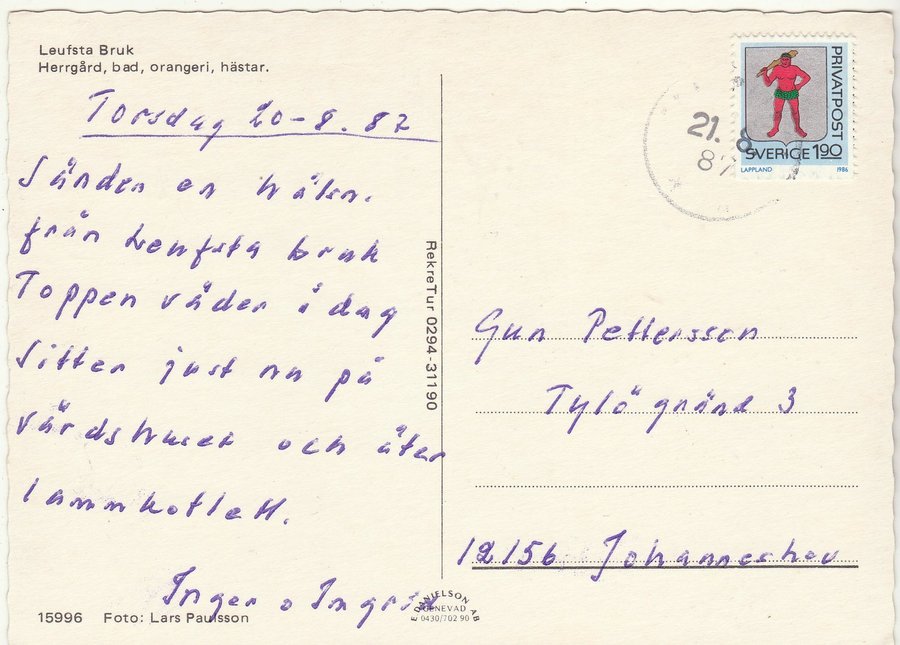 Leufsta Bruk
Herrgård, bad, orangeri, hästar.
Torsdag 20-8.87
Sänder en hälsn.
från Leufsta bruk
Toppen väder i dag
Sitter just nu på
värdshuset och äter
lammkotlett.
Inger o Ingrid
15996 Foto: Lars Paulsson
RekreTur 0294-31190
E DANIELSON AB
GENEVAD
0430/702 90
PRIVATPOST
SVERIGE 1.90
LAPPLAND 1986
21. 8
87
Gun Pettersson
Tylögränd 3
12156 Johanneshov